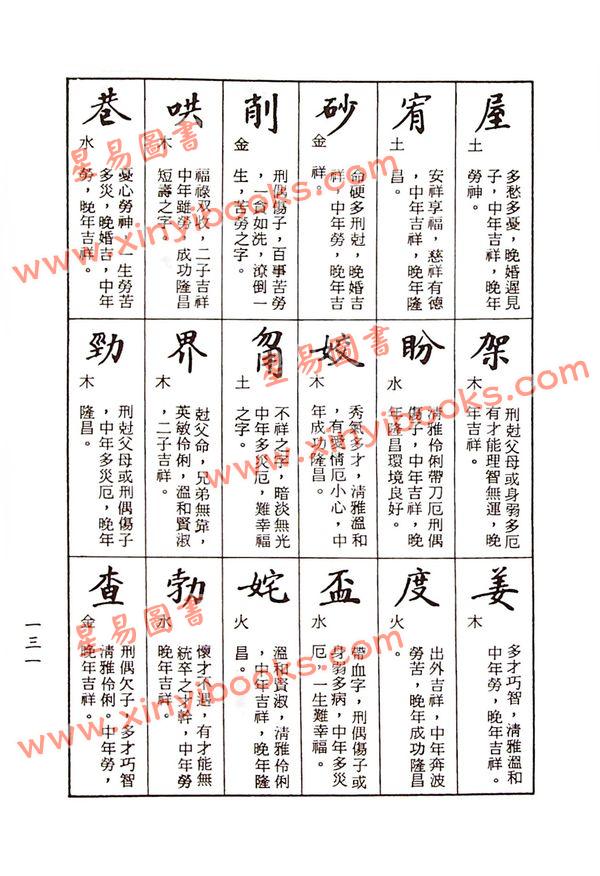 屋
土
多愁多憂，晚婚遲見
子，中年吉祥，晚年
勞神。
宥
土
安祥享福，慈祥有德
，中年吉祥，晚年隆
昌。
砂
金
命硬多刑尅，晚婚吉
祥，中年勞，晚年吉
祥。
削
金
刑偶傷子，百事苦勞
，一貧如洗，潦倒一
生，苦勞之字。
哄
木
福祿双收，二子吉祥
中年雖勞，成功隆昌
短壽之字。
巷
水
憂心勞神，一生勞苦
多災，晚婚吉，中年
勞，晚年吉祥。
架
木
刑尅父母或身弱多厄
有才能理智無運，晚
年吉祥。
盼
水
清雅伶俐帶刀厄刑偶
傷子，中年吉祥，晚
年隆昌環境良好。
姣
木
秀氣多才，清雅溫和
，有愛情厄小心，中
年成功隆昌。
土
不祥之字，暗淡無光
中年多災厄，難幸福
之字。
界
木
尅父命，兄弟無靠，
英敏伶俐，溫和賢淑
，二子吉祥。
勁
木
刑尅父母或刑偶傷子
，中年多災厄，晚年
隆昌。
姜
木
多才巧智，清雅溫和
中年勞，晚年吉祥。
度
火
出外吉祥，中年奔波
勞苦，晚年成功隆昌
。
盃
水
帶血字，刑偶傷子或
身弱多病，中年多災
厄，一生難幸福。
姹
火
溫和賢淑，清雅伶俐
，中年吉祥，晚年隆
昌。
勃
水
懷才不遇，有才能無
統卒之才幹，中年勞
晚年吉祥。
查
金
刑偶欠子，多才巧智
清雅伶俐。中年勞，
晚年吉祥。
一三一
星易圖書
www.xinyibooks.com
星易圖書
www.xinyibooks.com
星易圖書
www.xinyibooks.com